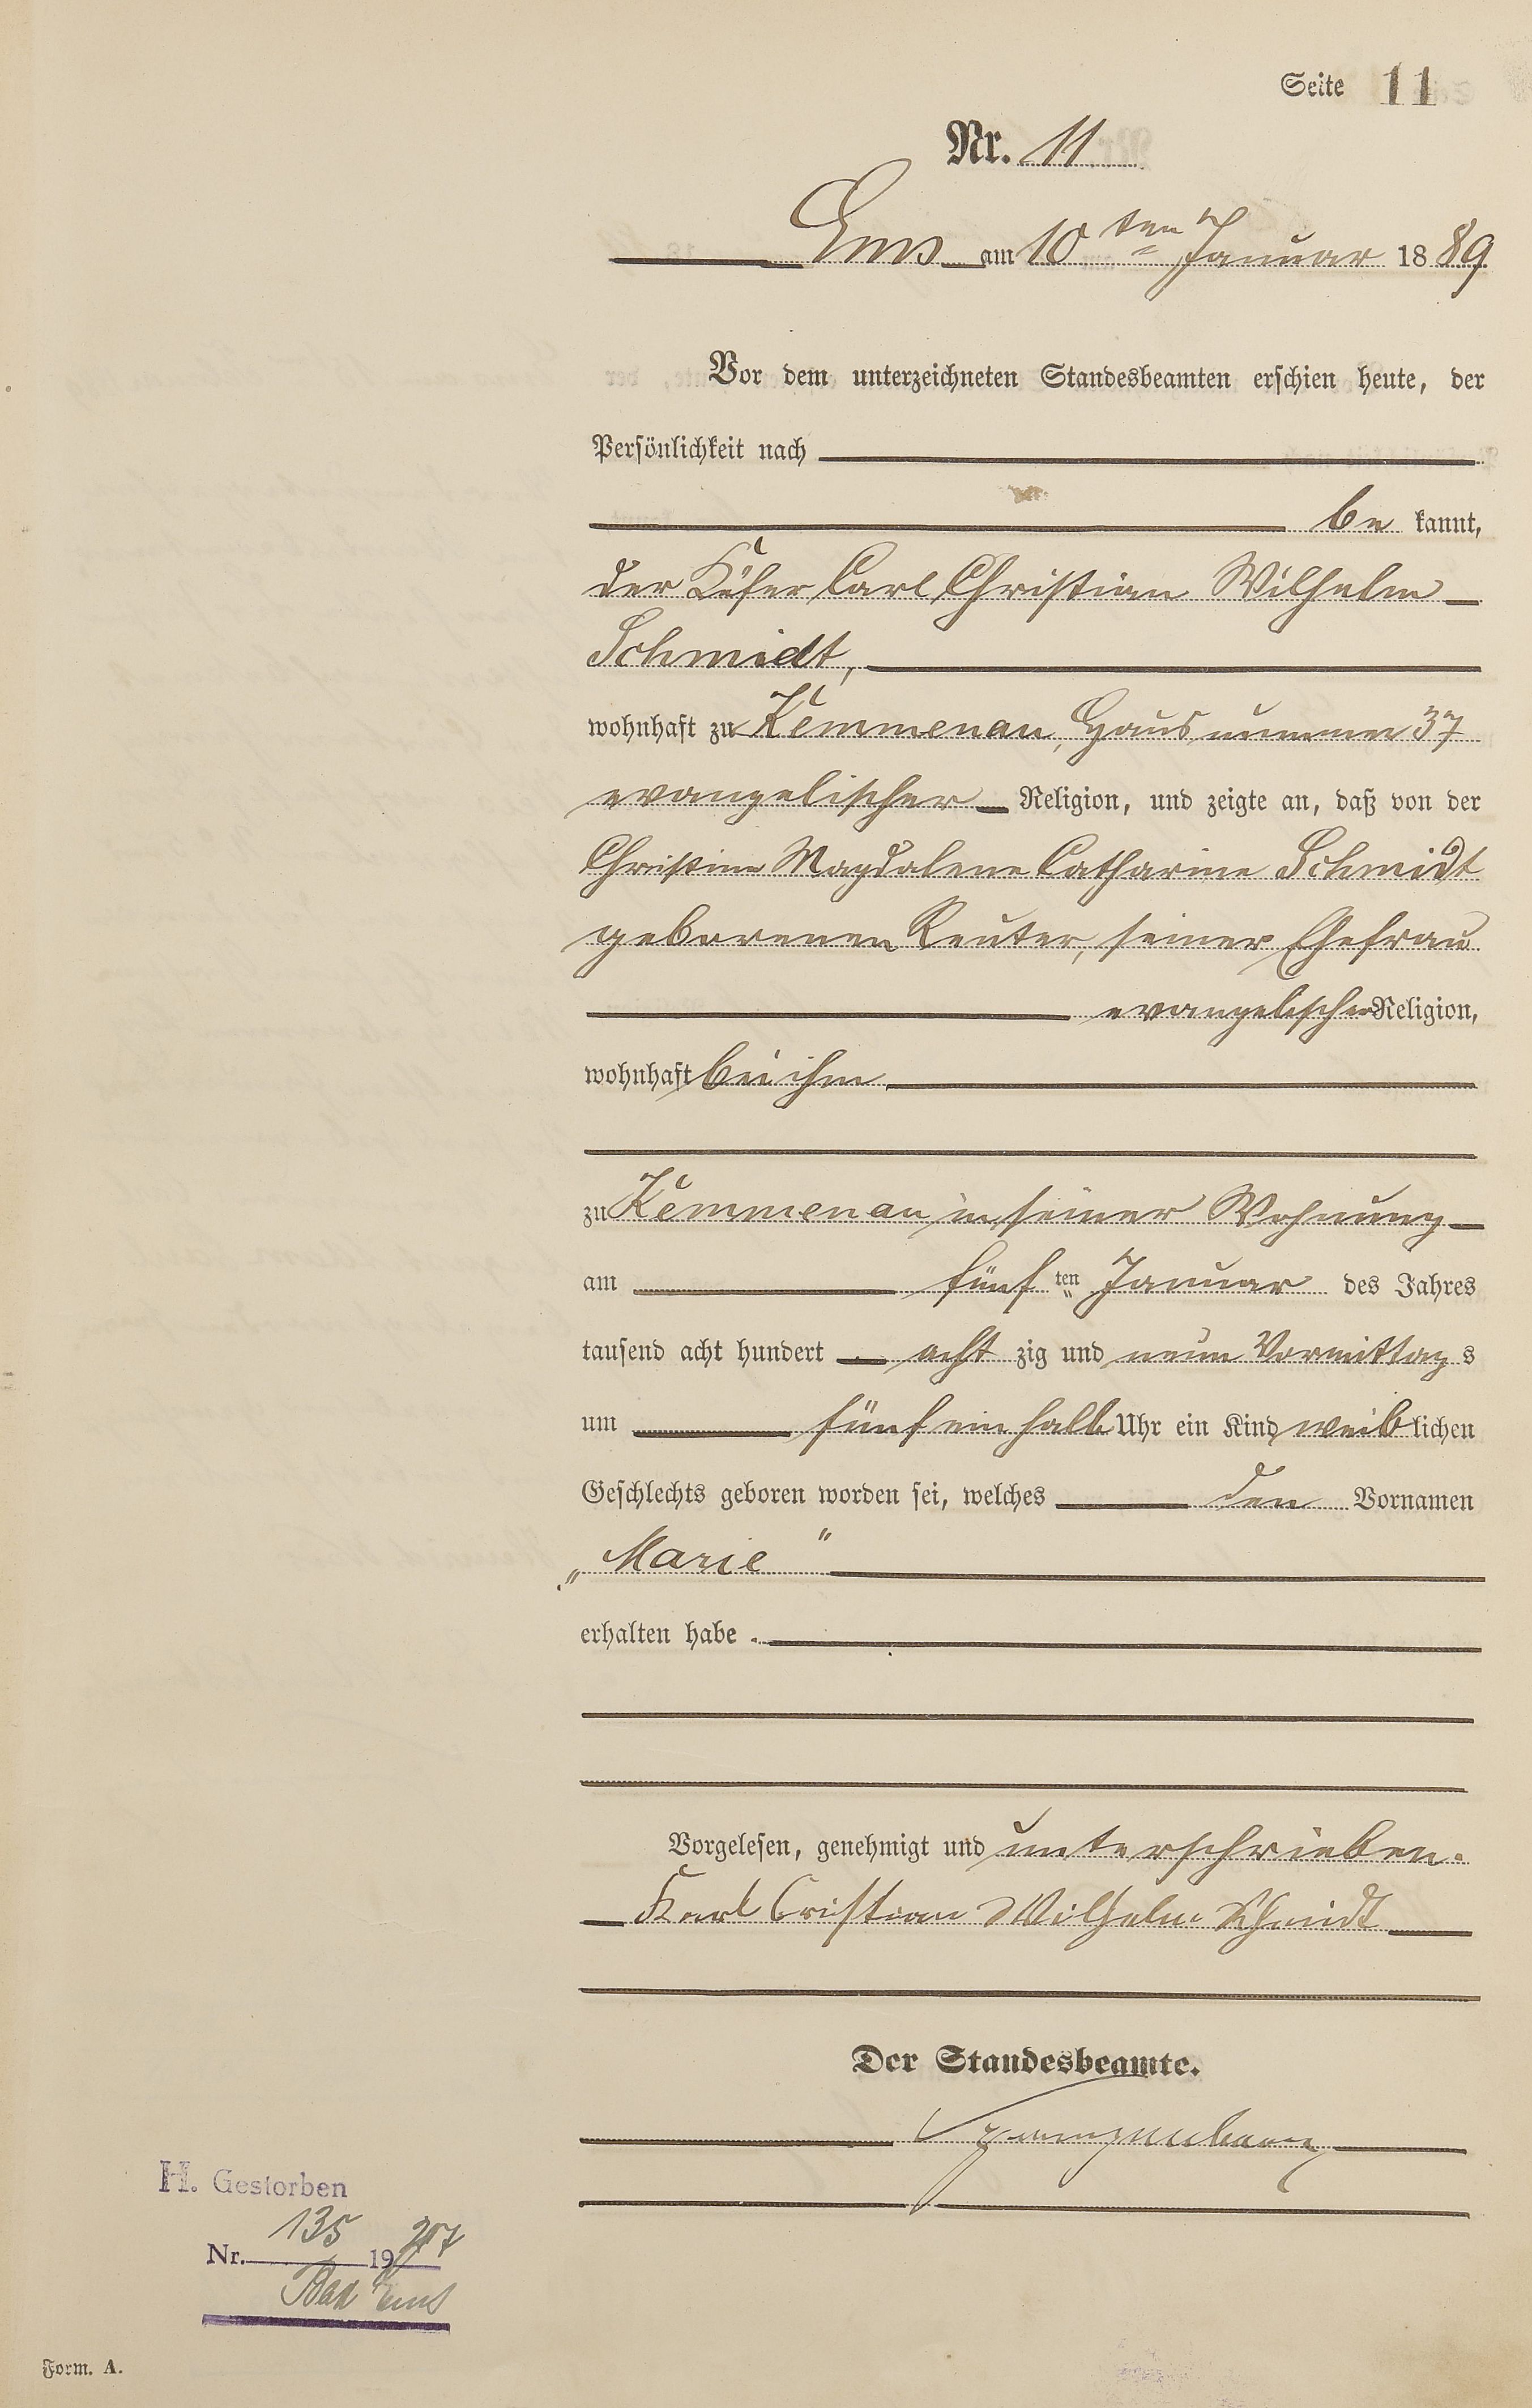 Seite 11
Nr. 11
Ems am 10ten Januar 1889
Vor dem unterzeichneten Standesbeamten erschien heute, der
Persönlichkeit nach
be kannt,
der Küfer Carl Christian Wilhelm
Schmidt,
wohnhaft zu Kemmenau, Hausnummer 37
evangelischer Religion, und zeigte an, daß von der
Christine Magdalene Catharine Schmidt
geborenen Reuter, seiner Ehefrau
evangelischer Religion,
wohnhaft bei ihm
zu Kemmenau in seiner Wohnung
am fünf ten Januar des Jahres
tausend acht hundert acht zig und neun Vormittag s
um fünf ein halb Uhr ein Kind weib lichen
Geschlechts geboren worden sei, welches den Vornamen
„Marie“
erhalten habe.
Vorgelesen, genehmigt und unterschrieben.
Karl Cristian Wilhelm Schmidt
Der Standesbeamte.
H. Gestorben
Nr. 135 19
Bad Ems
Form. A.